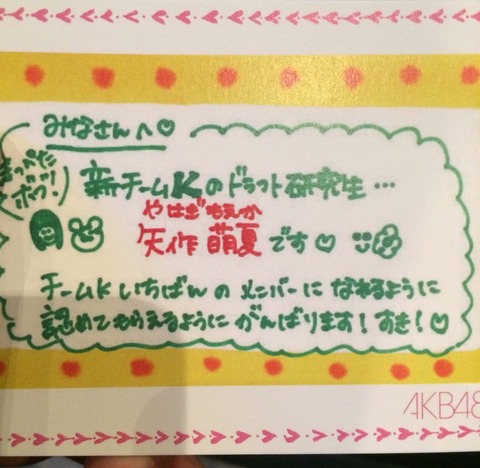 みなさんへ♡
まっぷたボク!
新チームKのドラフト研究生…
やはぎもえか
矢作萌夏です♡
チームKいちばんのメンバーになれるように
認めてもらえるようにがんばります!すき!♡
AKB48